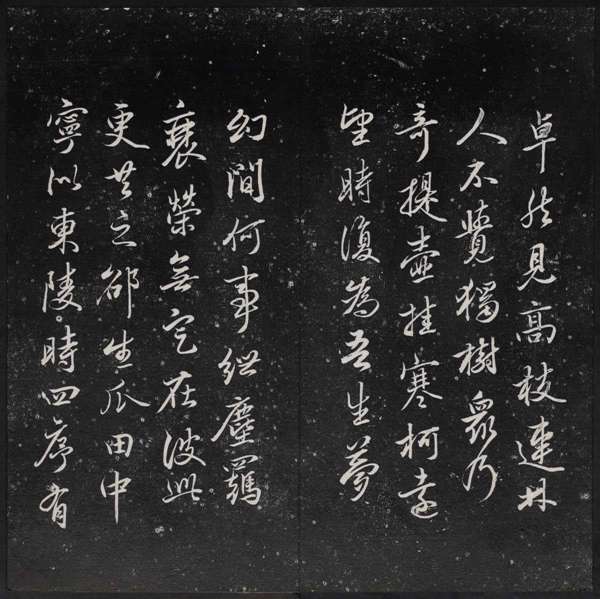 卓然見高枝連林
人不覺獨樹眾乃
奇提壺挂寒柯遠
望時復為吾生夢
幻間何事紲塵羈
衰榮無定在彼此
更共之邵生瓜田中
寧似東陵時四序有